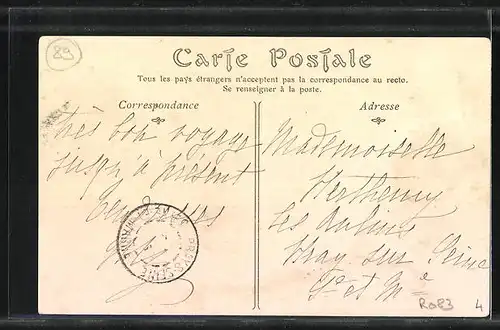 89
Carte Postale
Tous les pays étrangers n'acceptent pas la correspondance au recto.
Se renseigner à la poste.
Correspondance
très bon voyage
jusqu'à présent
Adresse
Mademoiselle
Les
Bray sur Seine
Sne et Me
R083
4